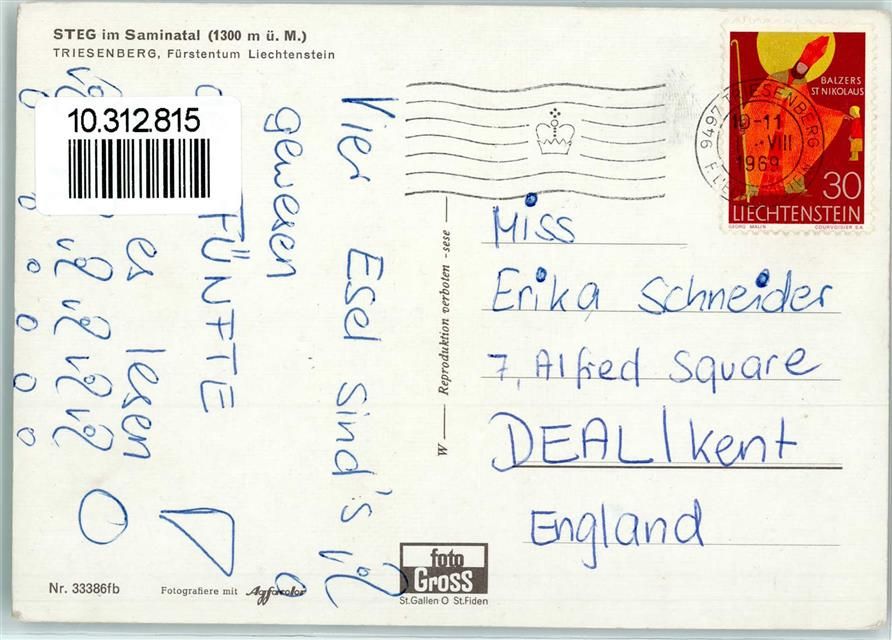 STEG im Saminatal (1300 m ü. M.)
TRIESENBERG, Fürstentum Liechtenstein
10.312.815
Vier Esel sind's
gewesen
FÜNFTE
es lesen
Nr. 33386fb
Fotografiere mit Agfacolor
W — Reproduktion verboten - sese —
foto
GROSS
St.Gallen O St.Fiden
BALZERS
ST NIKOLAUS
30
LIECHTENSTEIN
GEORG MALIN COURVOISIER S.A.
9497 TRIESENBERG
10-11
VIII
1969
Miss
Erika Schneider
7, Alfred Square
DEAL/Kent
England